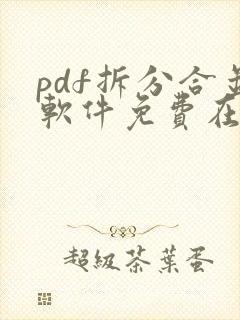 pdf拆分合
軟件免費在
超級茶葉蛋